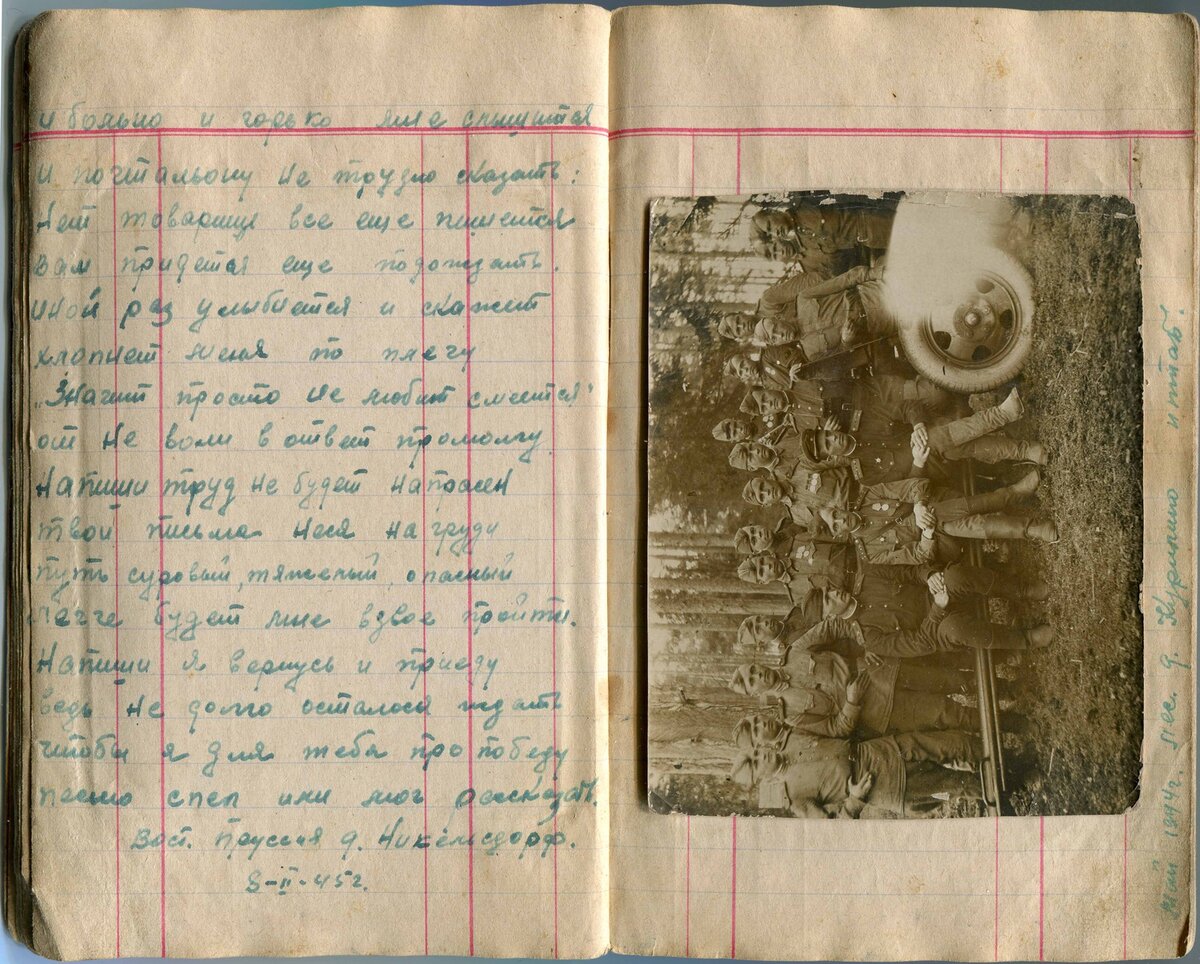 и больно и горько мне слышится
и почтальону не трудно сказать:
Нет товарищ все еще пишется
Вам придется еще подождать.
иной раз улыбнется и скажет
хлопнет меня по плечу
"Значит просто не любит смеется"
от не воли в ответ промолчу.
Напиши труд не будет напрасен
твои письма неся на груди
путь суровый, тяжелый, опасный
легче будет мне вдвое пройти.
Напиши я вернусь и приеду
ведь не долго осталося ждать
чтобы я для тебя про победу
песню спел или мог рассказать.
Вост. Пруссия д. Никельсдорф.
8-II-45г.
Май 1944г. лес. д. Курипино штаб.